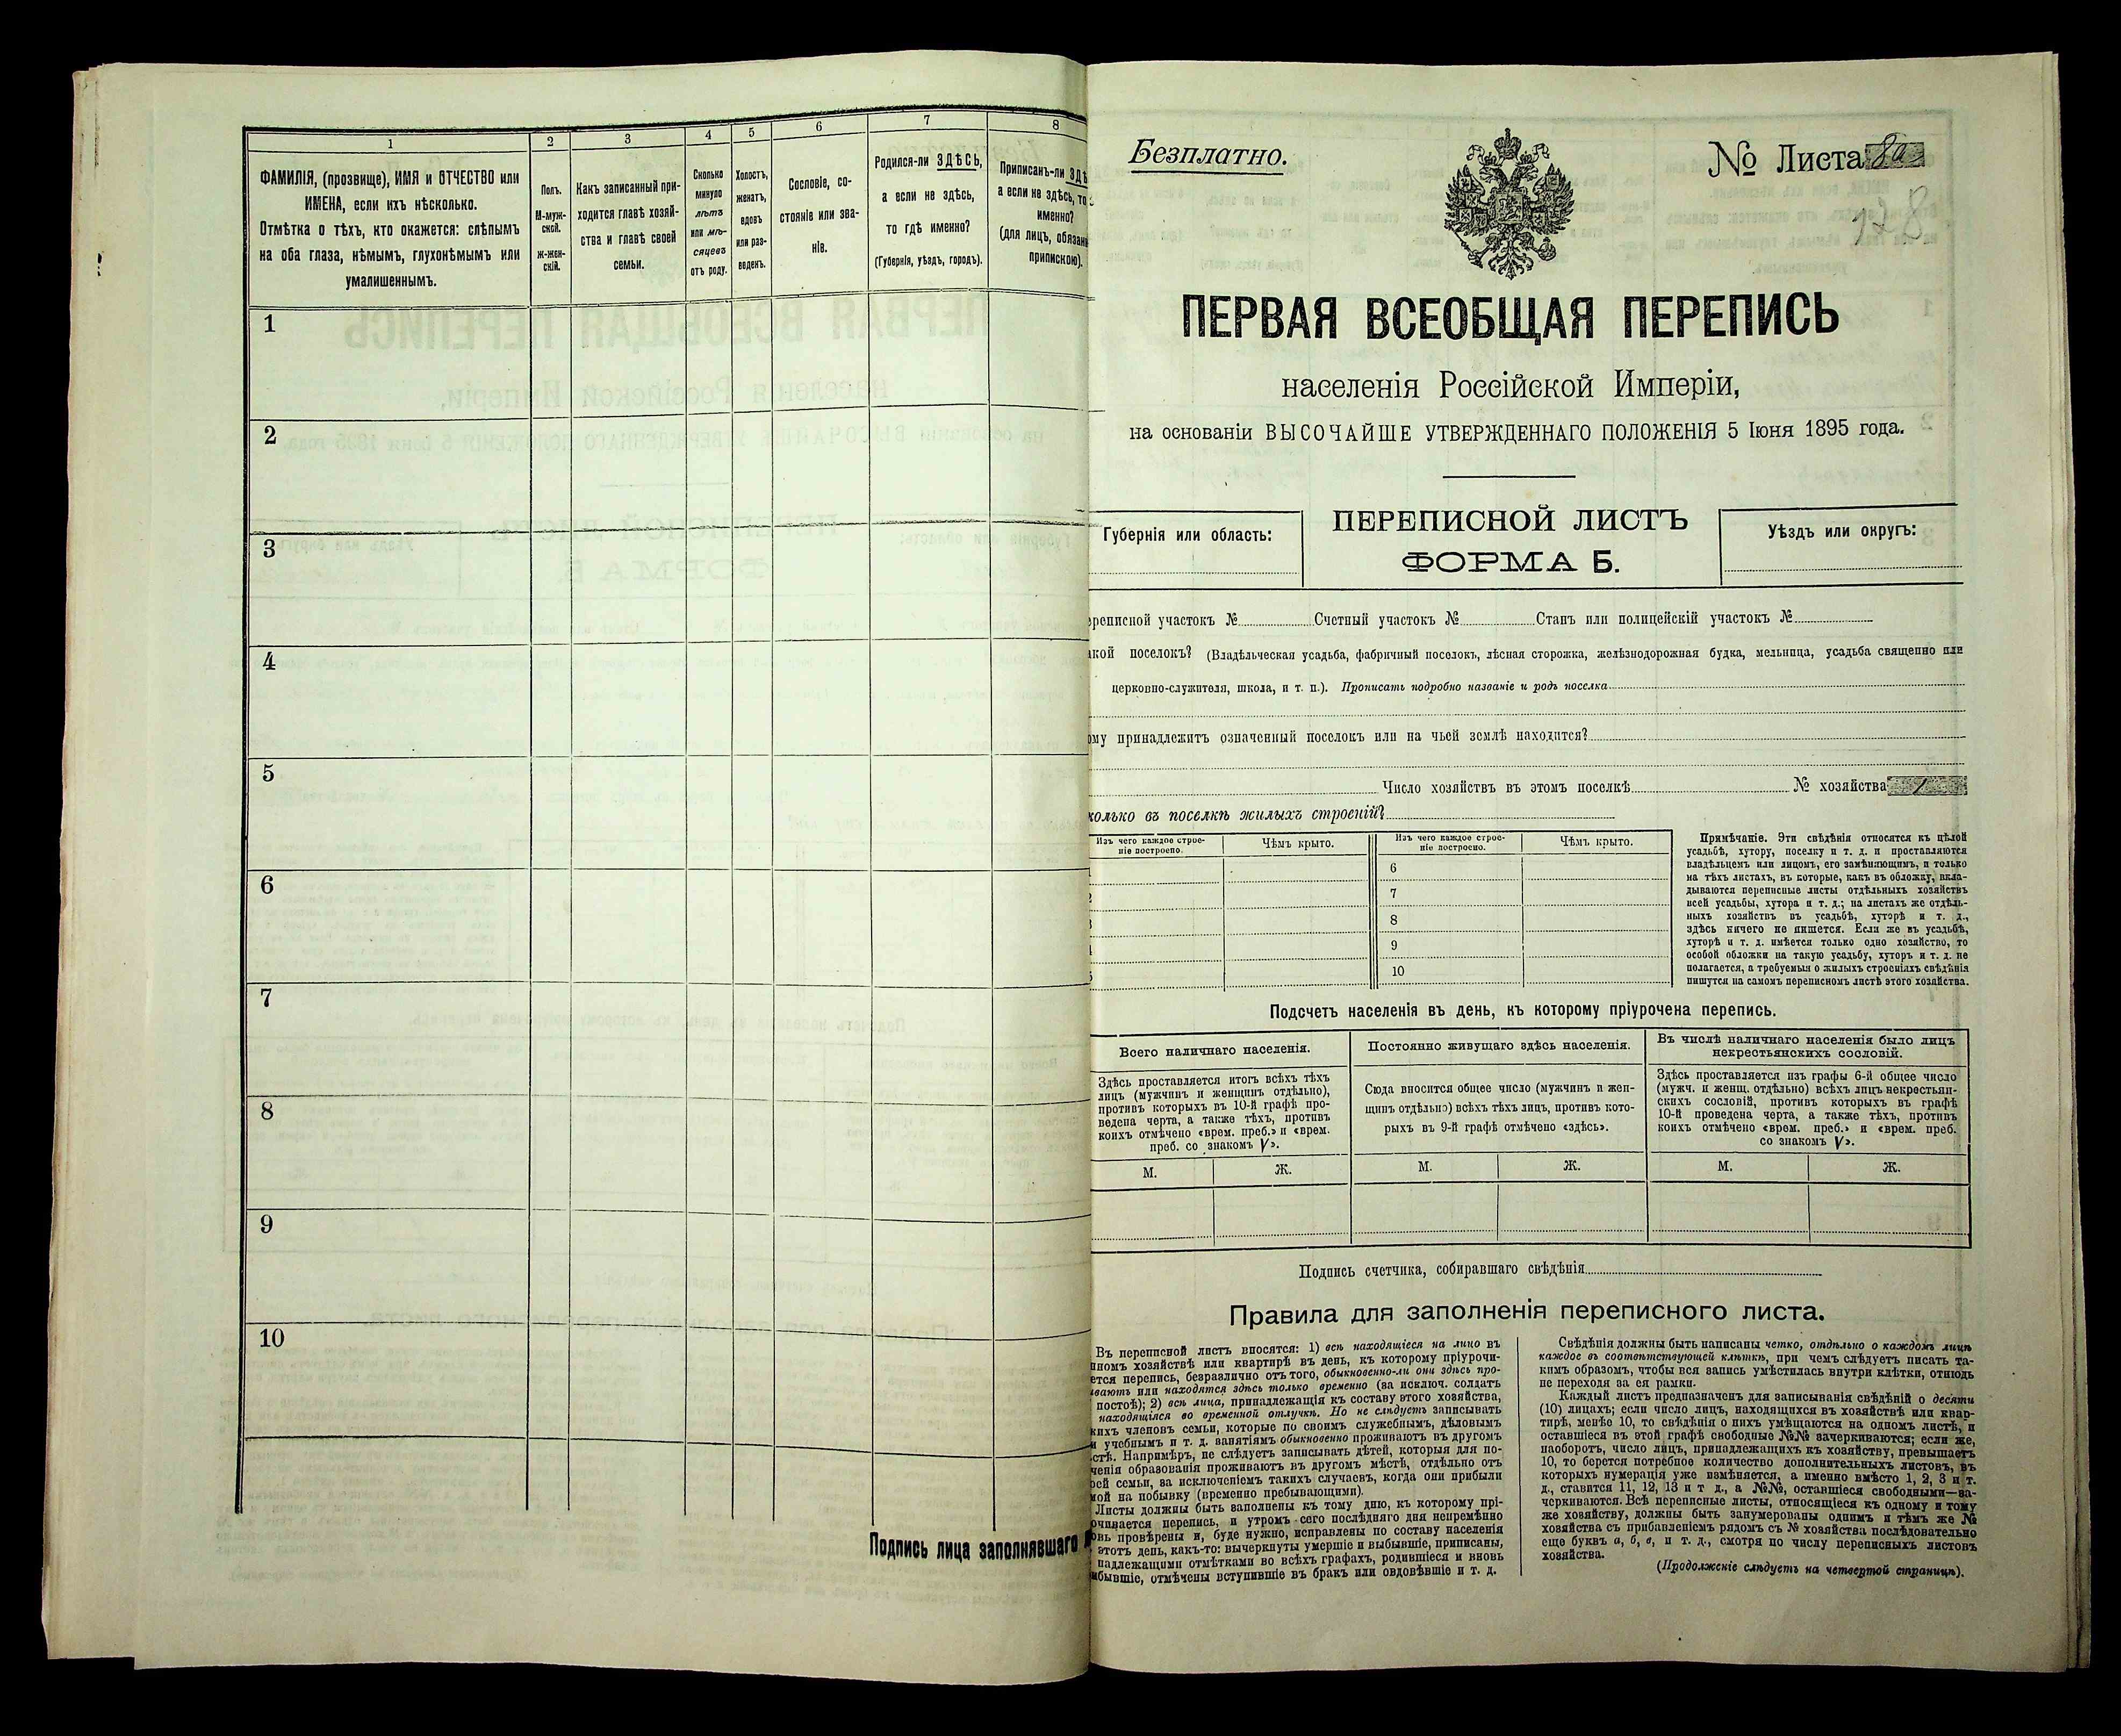 1
2
3
4
5
6
7
8
ФАМИЛІЯ, (прозвище), ИМЯ и ОТЧЕСТВО или
ИМЕНА, если ихъ нѣсколько.
Отмѣтка о тѣхъ, кто окажется: слѣпымъ
на оба глаза, нѣмымъ, глухонѣмымъ или
умалишеннымъ.
Полъ.
М-муж-
ской.
Ж-жен-
скій.
Какъ записанный при-
ходится главѣ хозяй-
ства и главѣ своей
семьи.
Сколько
минуло
лѣтъ
или мѣ-
сяцевъ
отъ роду.
Холостъ,
женатъ,
вдовъ
или раз-
веденъ.
Сословіе, со-
стояніе или зва-
ніе.
Родился-ли ЗДѢСЬ,
а если не здѣсь,
то гдѣ именно?
(Губернія, уѣздъ, городъ).
Приписанъ-ли ЗДѢ
а если не здѣсь, то
именно?
(для лицъ, обязан
припискою).
1
2
3
4
5
6
7
8
9
10
Подпись лица заполнявшаго
Безплатно.
№ Листа 8а
128
ПЕРВАЯ ВСЕОБЩАЯ ПЕРЕПИСЬ
населенія Россійской Имперіи,
на основаніи ВЫСОЧАЙШЕ УТВЕРЖДЕННАГО ПОЛОЖЕНІЯ 5 Іюня 1895 года.
Губернія или область:
ПЕРЕПИСНОЙ ЛИСТЪ
ФОРМА Б.
Уѣздъ или округъ:
реписной участокъ № Счетный участокъ № Станъ или полицейскій участокъ №
кой поселокъ? (Владѣльческая усадьба, фабричный поселокъ, лѣсная сторожка, желѣзнодорожная будка, мельница, усадьба священно или
церковно-служителя, школа, и т. п.). Прописать подробно названіе и родъ поселка
ому принадлежитъ означенный поселокъ или на чьей землѣ находится?
Число хозяйствъ въ этомъ поселкѣ № хозяйства 1
колько въ поселкѣ жилыхъ строеній?
Изъ чего каждое строе-
ніе построено.
Чѣмъ крыто.
Изъ чего каждое строе-
ніе построено.
Чѣмъ крыто.
6
7
8
9
10
Примѣчаніе. Эти свѣдѣнія относятся къ цѣлой
усадьбѣ, хутору, поселку и т. д. и проставляются
владѣльцемъ или лицомъ, его замѣняющимъ, и только
на тѣхъ листахъ, въ которые, какъ въ обложку, вкла-
дываются переписные листы отдѣльныхъ хозяйствъ
всей усадьбы, хутора и т. д.; на листахъ же отдѣль-
ныхъ хозяйствъ въ усадьбѣ, хуторѣ и т. д.,
здѣсь ничего не пишется. Если же въ усадьбѣ,
хуторѣ и т. д. имѣется только одно хозяйство, то
особой обложки на такую усадьбу, хуторъ и т. д. не
полагается, а требуемыя о жилыхъ строеніяхъ свѣдѣнія
пишутся на самомъ переписномъ листѣ этого хозяйства.
Подсчетъ населенія въ день, къ которому пріурочена перепись.
Всего наличнаго населенія.
Здѣсь проставляется итогъ всѣхъ тѣхъ
лицъ (мужчинъ и женщинъ отдѣльно),
противъ которыхъ въ 10-й графѣ про-
ведена черта, а также тѣхъ, противъ
коихъ отмѣчено «врем. преб.» и «врем.
преб. со знакомъ V».
М.
Ж.
Постоянно живущаго здѣсь населенія.
Сюда вносится общее число (мужчинъ и жен-
щинъ отдѣльно) всѣхъ тѣхъ лицъ, противъ кото-
рыхъ въ 9-й графѣ отмѣчено «здѣсь».
М.
Ж.
Въ числѣ наличнаго населенія было лицъ
некрестьянскихъ сословій.
Здѣсь проставляется изъ графы 6-й общее число
(мужч. и женщ. отдѣльно) всѣхъ лицъ некрестьян-
скихъ сословій, противъ которыхъ въ графѣ
10-й проведена черта, а также тѣхъ, противъ
коихъ отмѣчено «врем. преб.» и «врем. преб.
со знакомъ V».
М.
Ж.
Подпись счетчика, собиравшаго свѣдѣнія
Правила для заполненія переписного листа.
Въ переписной листъ вносятся: 1) всѣ находящіеся на лицо въ
нномъ хозяйствѣ или квартирѣ въ день, къ которому пріурочи-
ется перепись, безразлично отъ того, обыкновенно-ли они здѣсь про-
иваютъ или находятся здѣсь только временно (за исключ. солдатъ
постоѣ); 2) всѣ лица, принадлежащія къ составу этого хозяйства,
находящіяся во временной отлучкѣ. Но не слѣдуетъ записывать
кихъ членовъ семьи, которые по своимъ служебнымъ, дѣловымъ
и учебнымъ и т. д. занятіямъ обыкновенно проживаютъ въ другомъ
стѣ. Напримѣръ, не слѣдуетъ записывать дѣтей, которыя для по-
ченія образованія проживаютъ въ другомъ мѣстѣ, отдѣльно отъ
оей семьи, за исключеніемъ такихъ случаевъ, когда они прибыли
мой на побывку (временно пребывающими).
Листы должны быть заполнены къ тому дню, къ которому прі-
очивается перепись, и утромъ сего послѣдняго дня непремѣнно
овь провѣрены и, буде нужно, исправлены по составу населенія
этотъ день, какъ-то: вычеркнуты умершіе и выбывшіе, приписаны,
надлежащими отмѣтками во всѣхъ графахъ, родившіеся и вновь
ибывшіе, отмѣчены вступившіе въ бракъ или овдовѣвшіе и т. д.
Свѣдѣнія должны быть написаны четко, отдѣльно о каждомъ лицѣ
каждое въ соотвѣтствующей клѣткѣ, при чемъ слѣдуетъ писать та-
кимъ образомъ, чтобы вся запись умѣстилась внутри клѣтки, отнюдь
не переходя за ея рамки.
Каждый листъ предназначенъ для записыванія свѣдѣній о десяти
(10) лицахъ; если число лицъ, находящихся въ хозяйствѣ или квар-
тирѣ, менѣе 10, то свѣдѣнія о нихъ умѣщаются на одномъ листѣ, и
оставшіеся въ этой графѣ свободные №№ зачеркиваются; если же,
наоборотъ, число лицъ, принадлежащихъ къ хозяйству, превышаетъ
10, то берется потребное количество дополнительныхъ листовъ, въ
которыхъ нумерація уже измѣняется, а именно вмѣсто 1, 2, 3 и т.
д., ставится 11, 12, 13 и т д., а №№, оставшіеся свободными—за-
черкиваются. Всѣ переписные листы, относящіеся къ одному и тому
же хозяйству, должны быть занумерованы однимъ и тѣмъ же №
хозяйства съ прибавленіемъ рядомъ съ № хозяйства послѣдовательно
еще буквъ а, б, в, и т. д., смотря по числу переписныхъ листовъ
хозяйства.
(Продолженіе слѣдуетъ на четвертой страницѣ).